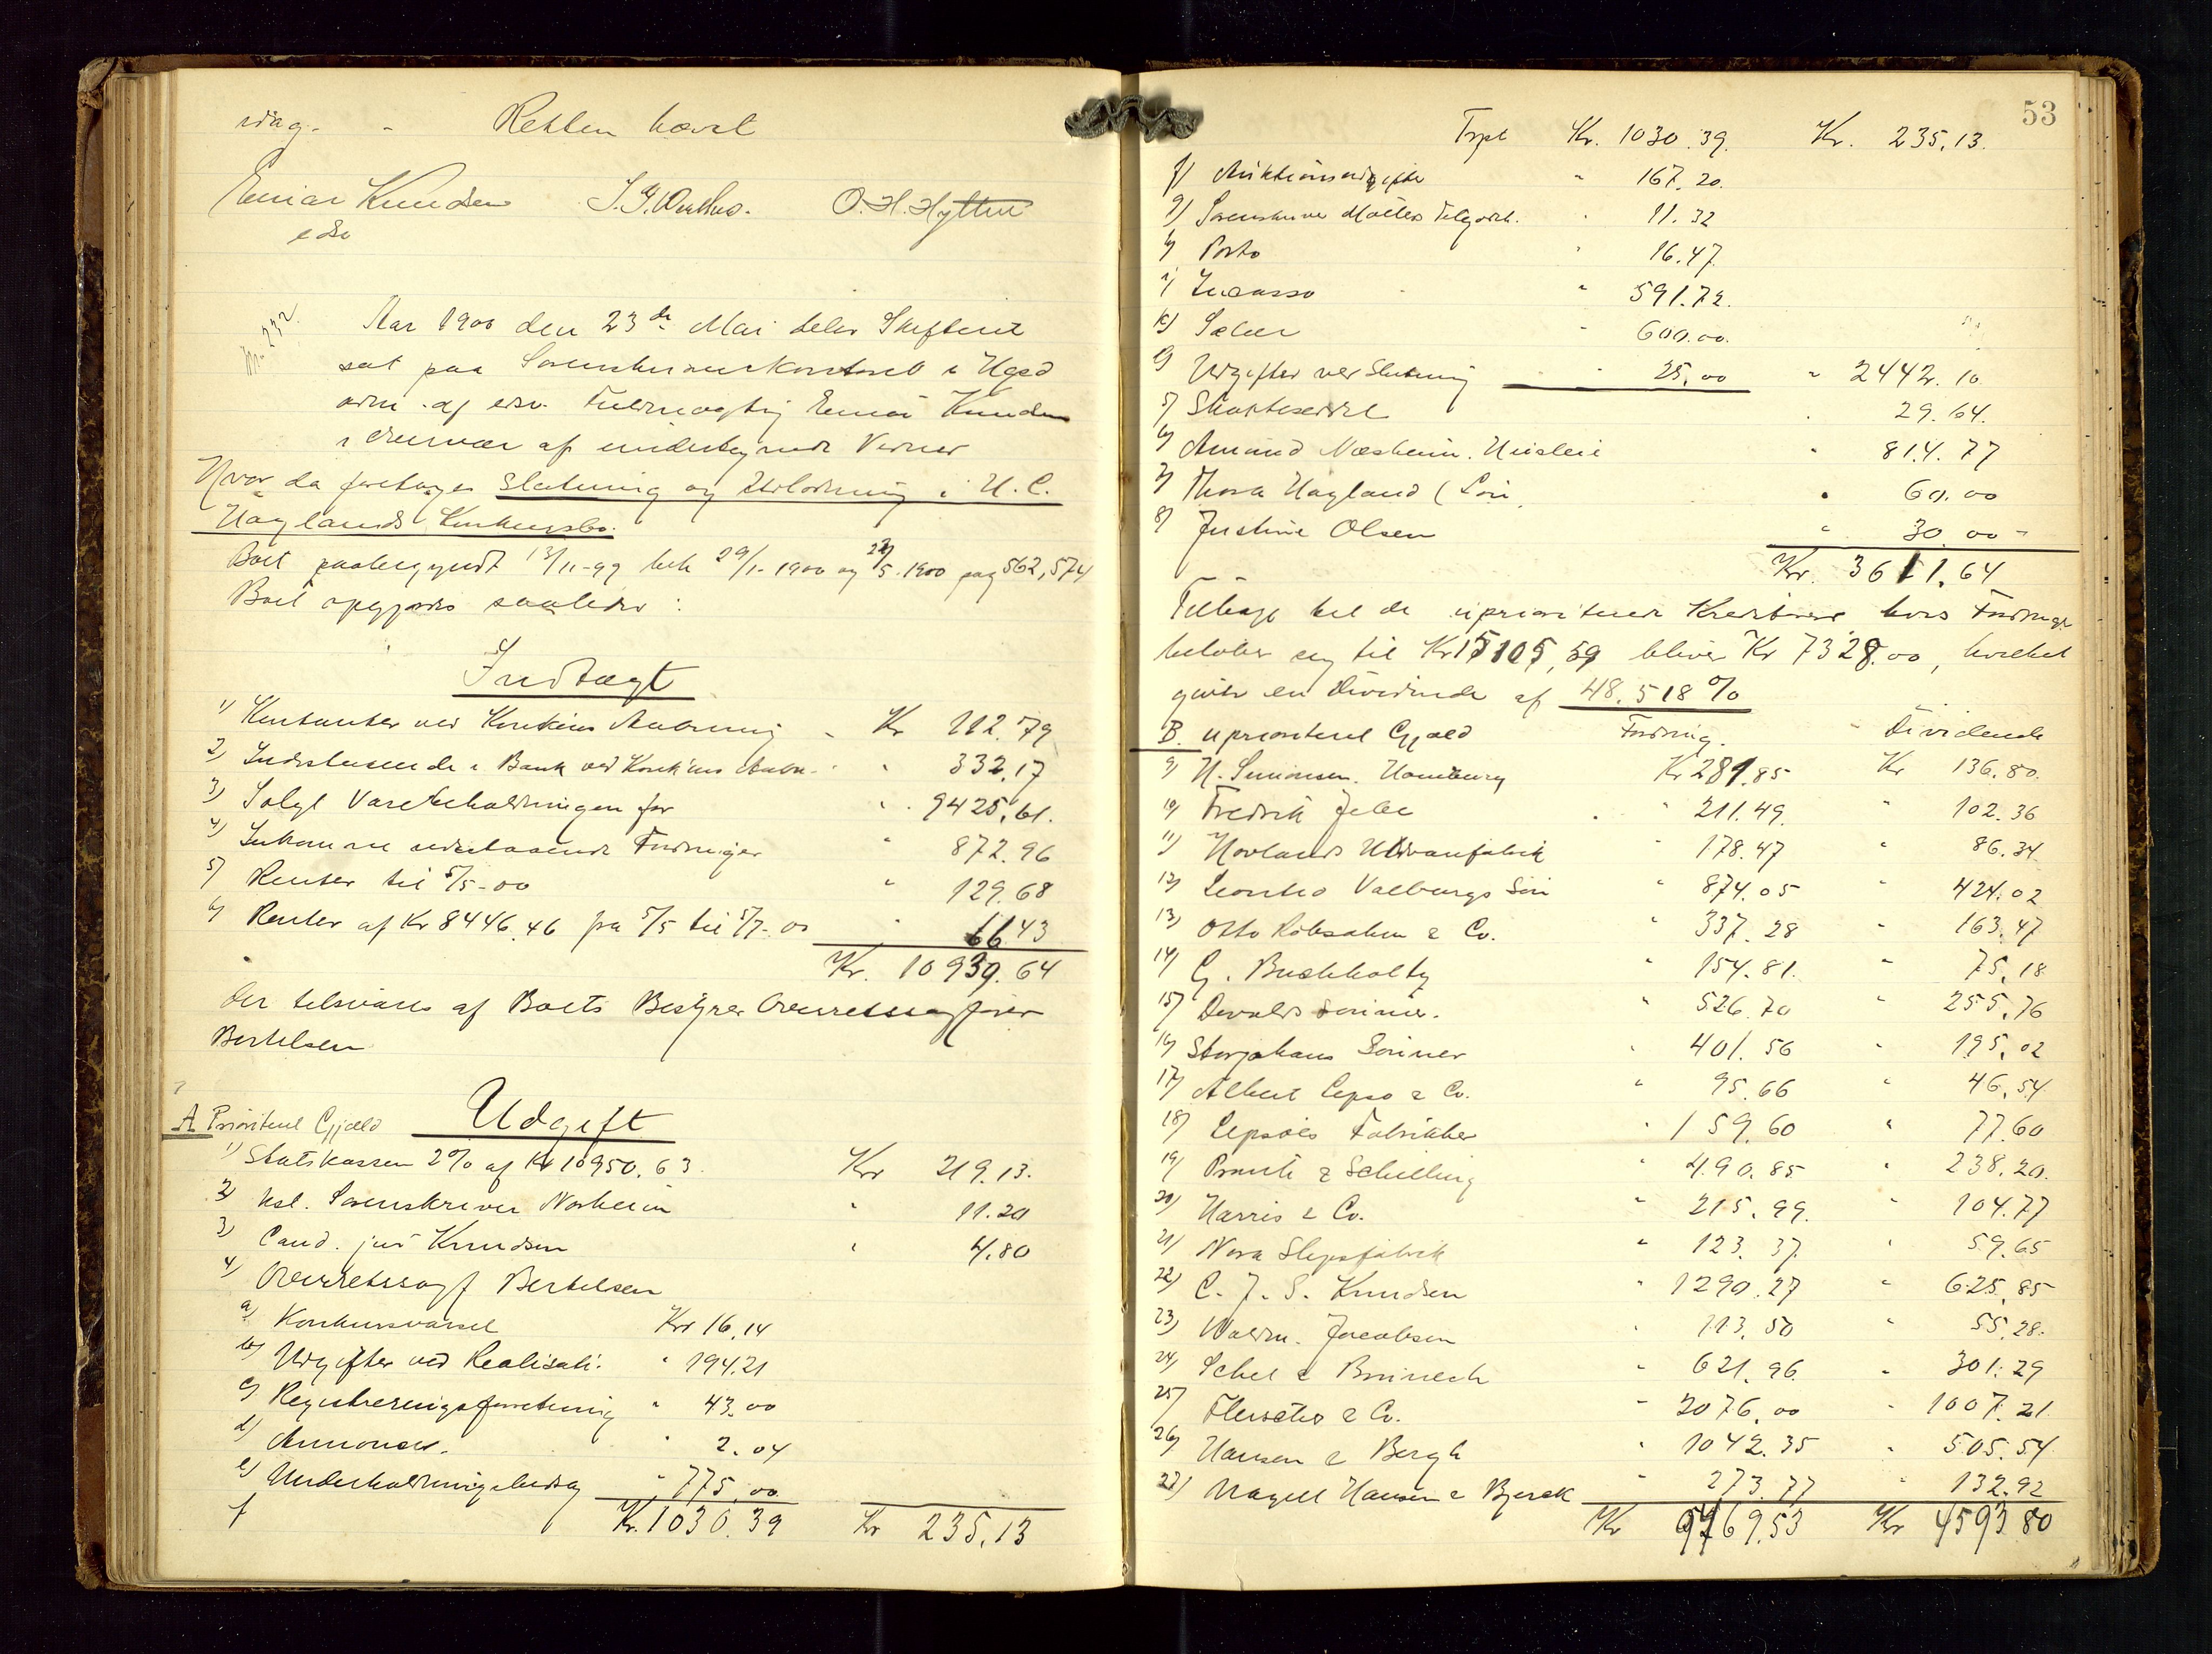 idag. - Retten hævet
Einar Knudsen
edsv
O. H. Hyttur
No. 232.
Aar 1900 den 23de Mai blev Skifteret
sat paa Sorenskriverkontoret i Hgsd
adm. af edsv. Fuldmægtig Einar Knudsen
i Overvær af undertegnede Vidner
Hvor da foretoges Slutning og Udlodning i H. C.
Haglands Konkursbo.
Boet paabegyndt 13/11-99 beh 29/1-1900 og 23/5-1900 pag 562, 574
Boet opgjøres saaledes:
Indtægt
1) Kontanter ved Konkurs Aabning - Kr 112.79
2) Indestaaende i Bank ved Konkurs Aabn. " 332.17
3) Solgt Varebeholdningen for " 9425.61.
4) Inkomne udestaaende Fordringer " 872.96
5) Renter til 5/5-00 " 129.68
6) Renter af Kr 8446.46 fra 5/5 til 5/7-00 " 66.43
Kr. 10939.64
der tilsvares af Boets Bestyrer Overretssagfører
Bertelsen
Udgift
A Prioriteret Gjæld
1) Statskassen 2% af Kr 10950.63. Kr 219.13.
2) Kst. Sorenskriver Norheim " 11.20
3) Cand. jur Knudsen " 4.80
4) Overretssagf Bertelsen
a) Konkursvarsel Kr 16.14
b) Udgifter ved Realisati. " 194.21
c) Registreringsforretning " 43.00
d) Annonser. " 2.04
e) Underholdningsbidrag " 775.00
f Kr. 1030.39 Kr 235.13
53
Trpt Kr. 1030.39. Kr. 235.13.
f) Auktionsudgifter " 167.20.
g) Sorenskriver Møllers Tilgodeh. " 11.32
h) Porto " 16.47
i) Incasso " 591.72.
k) Salær " 600.00.
l) Udgifter ved Slutning " 25.00 " 2442.10
5) Skatteseddel " 29.64.
6) Amund Næsheim. Husleie " 814.77
7) Thora Hagland (Løn " 60.00
8) Justine Olsen " 30.00 -
Kr. 3611.64
Tilbage til de uprioriterede Kreditorer hvis Fordringer
beløber sig til Kr 15105,59 bliver Kr 7328.00, hvilket
giver en Dividende af 48.518 %
B. uprioriteret Gjæld Fordring. Dividende
9) H. Simonsen. Hamburg Kr 281.85 Kr 136.80.
10) Fredrik Jebe " 211.49. " 102.36
11) Hovlands Uldvarefabrik " 178.47 " 86.34.
12) Leonhd Valbergs Søn " 874.05 " 424.02
13) Otto Robsahm & Co. " 337.28 " 163.47
14) G. Buchholtz " 154.81. " 75.18
15) Devolds Sønner. " 526.70 " 255.76
16) Storjohans Sønner " 401.56 " 195.02
17) Albert Lepsø & Co. " 95.66 " 46.54
18) Lepsøes Fabrikker " 159.60 " 77.60
19) & Schilling " 490.85 " 238.20.
20) Harris & Co. " 215.99. " 104.77
21) Nora Slipsfabrik " 123.37. " 59.65
22) C. J. S. Knudsen " 1290.27 " 625.85
23) Waldm. Jacobsen " 113.50 " 55.28.
24) " 621.96. " 301.29
25) & Co. " 2076.00 " 1007.21
26) Hansen & Bergh " 1042.35 " 505.54
27) Magell Hansen & " 273.77 " 132.92
Kr 9469.53 Kr 4593.80